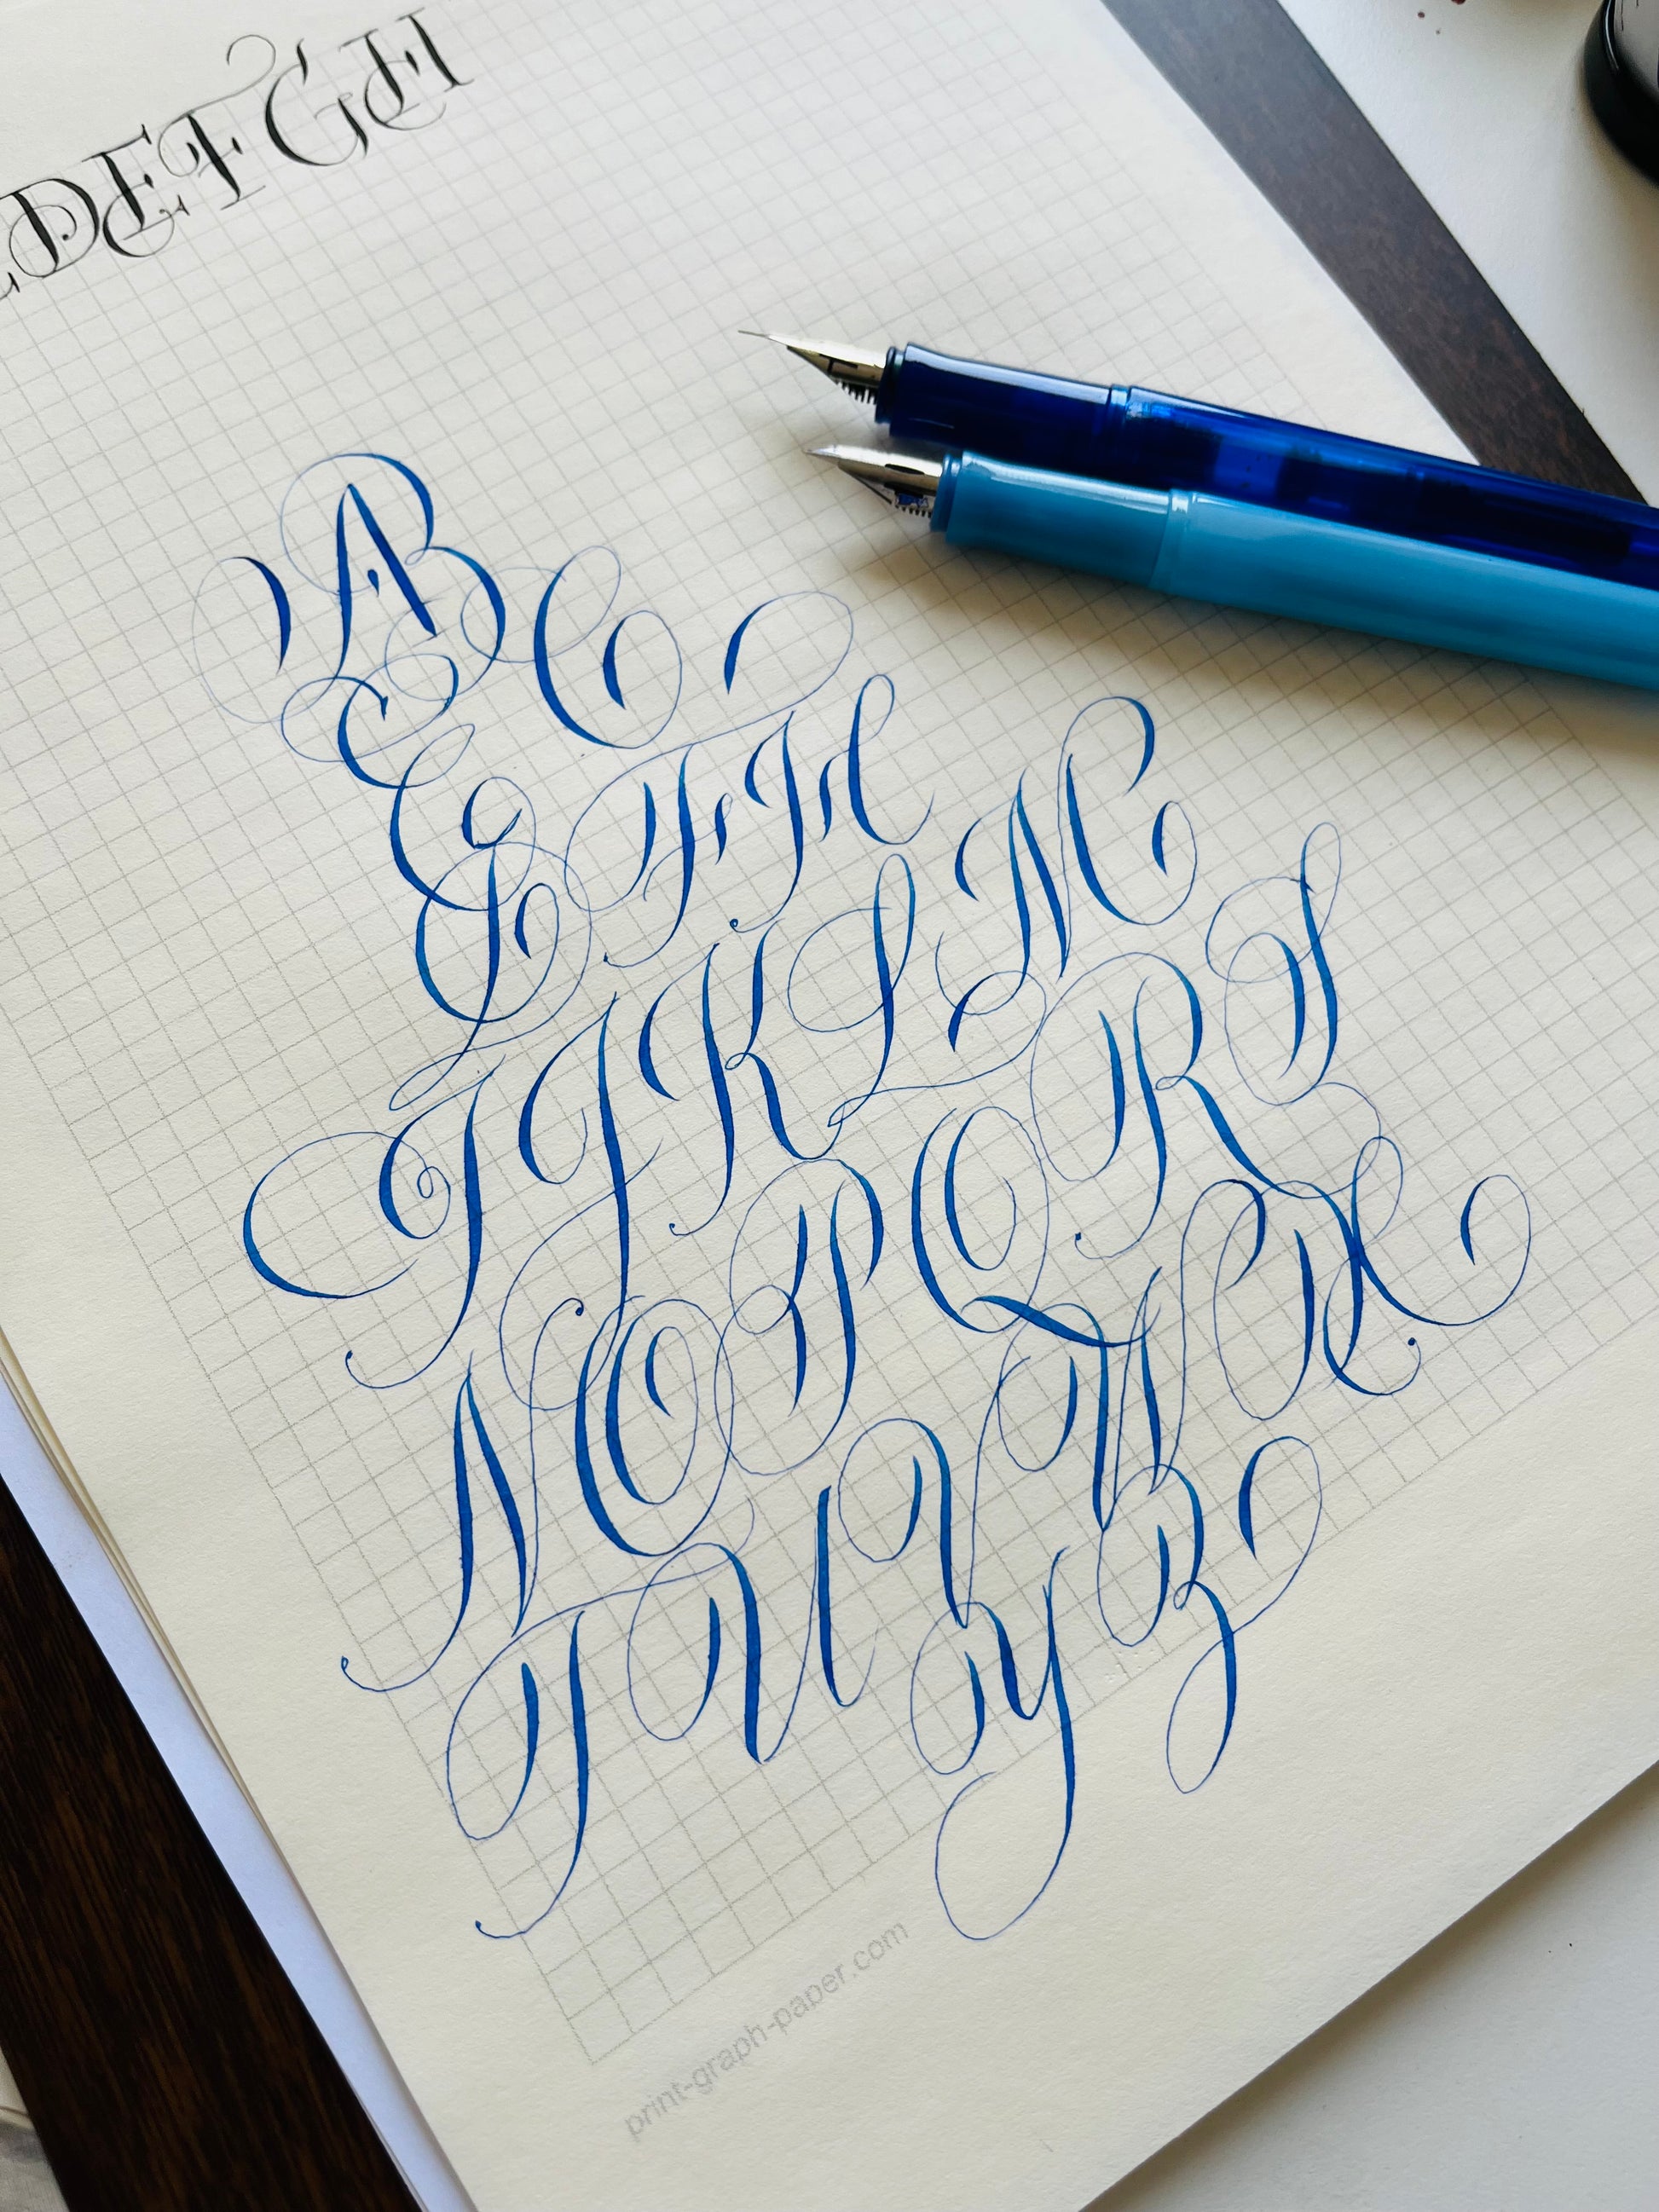 DEFGH
A B C
E G F H
I J K L M
N O P Q R S
T U V W X
Y Z
print-graph-paper.com